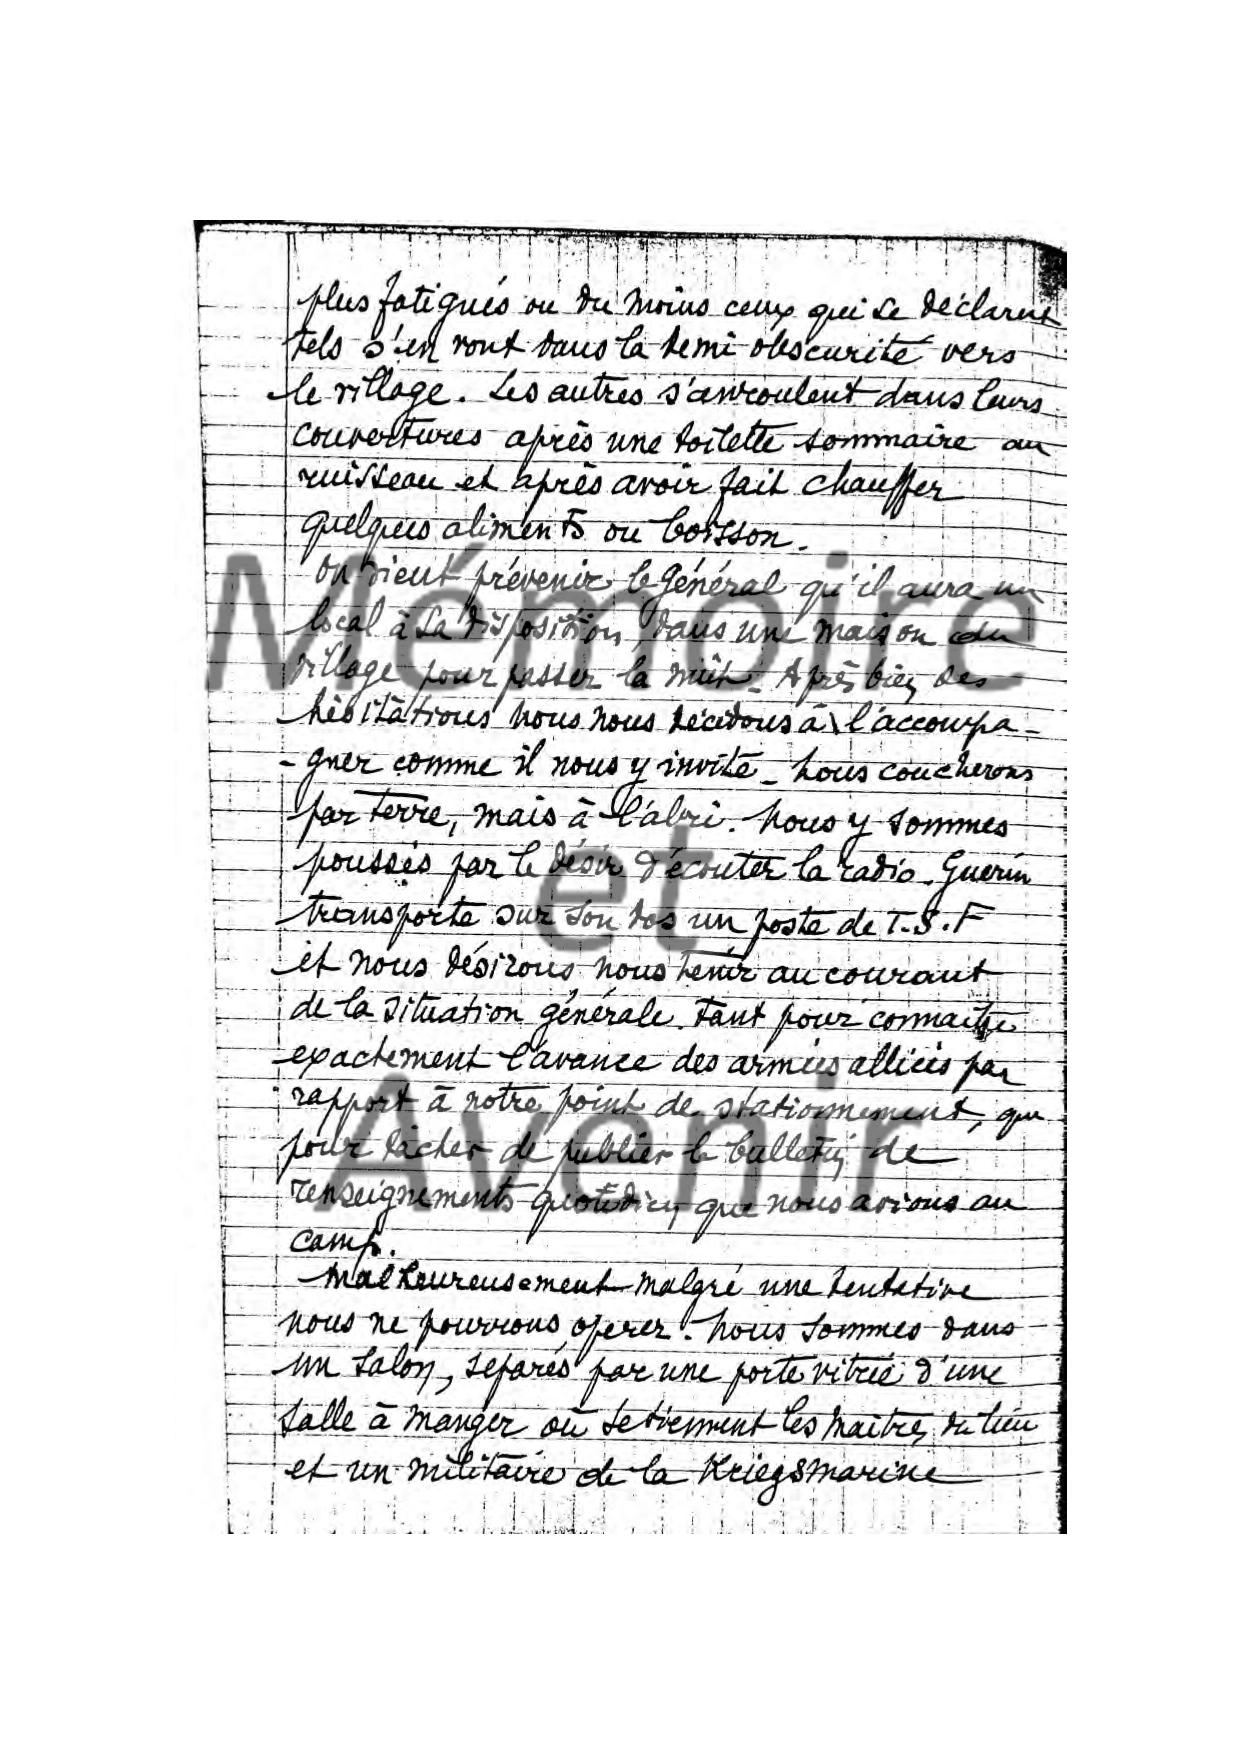 plus fatigués ou du moins ceux qui se déclarent
tels s'en vont dans la demi obscurité vers
le village. Les autres s'enroulent dans leurs
couvertures après une toilette sommaire au
ruisseau et après avoir fait chauffer
quelques aliments ou boisson.
On vient prévenir le Général qu'il aura un
local à sa disposition, dans une maison du
village pour passer la nuit. Après bien des
hésitations nous nous décidons à l'accompa-
-gner comme il nous y invite. Nous coucherons
par terre, mais à l'abri. Nous y sommes
poussés par le désir d'écouter la radio. Guérin
transporte sur son dos un poste de T.S.F
et nous désirons nous tenir au courant
de la situation générale. Tant pour connaitre
exactement l'avance des armées alliées par
rapport à notre point de stationnement, que
pour tâcher de publier le bulletin de
renseignements quotidien que nous avions au
camp.
Malheureusement malgré une tentative
nous ne pourrons operer. Nous sommes dans
un salon, séparés par une porte vitrée d'une
salle à manger où se tiennent les maitres du lieu
et un militaire de la Kriegsmarine
Mémoire
et
Avenir